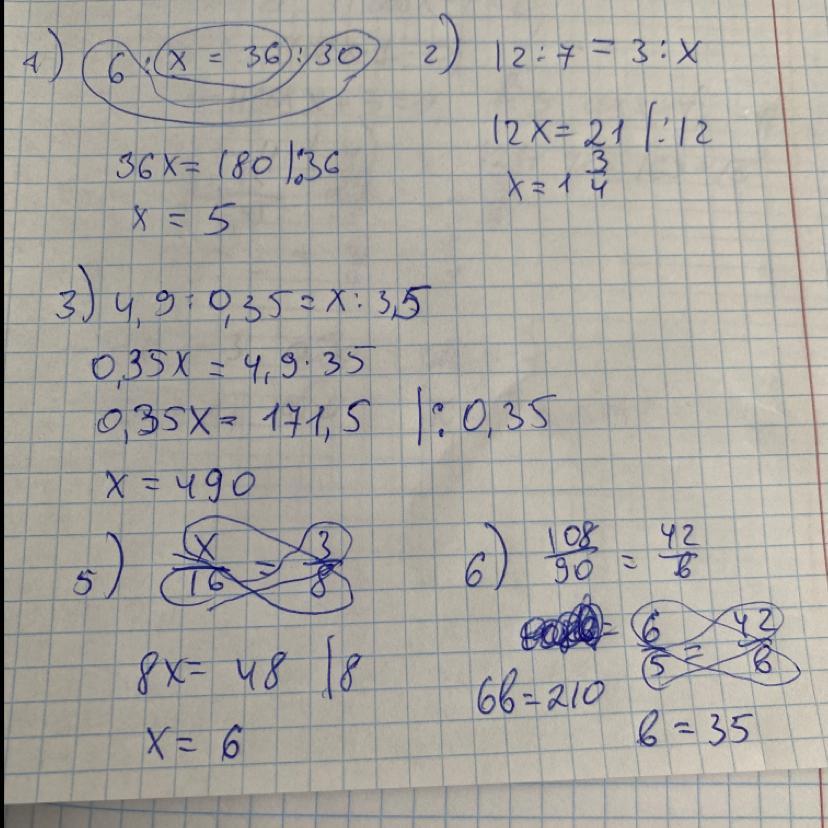 1) 6 : x = 36 : 30
36x = 180 |:36
x = 5
2) 12 : 7 = 3 : x
12x = 21 |:12
x = 1 3/4
3) 4,9 : 0,35 = x : 3,5
0,35x = 4,9 · 35
0,35x = 171,5 |: 0,35
x = 490
5) x/16 = 3/8
8x = 48 |8
x = 6
6) 108/90 = 42/в
= 6/5 = 42/в
6в = 210
в = 35